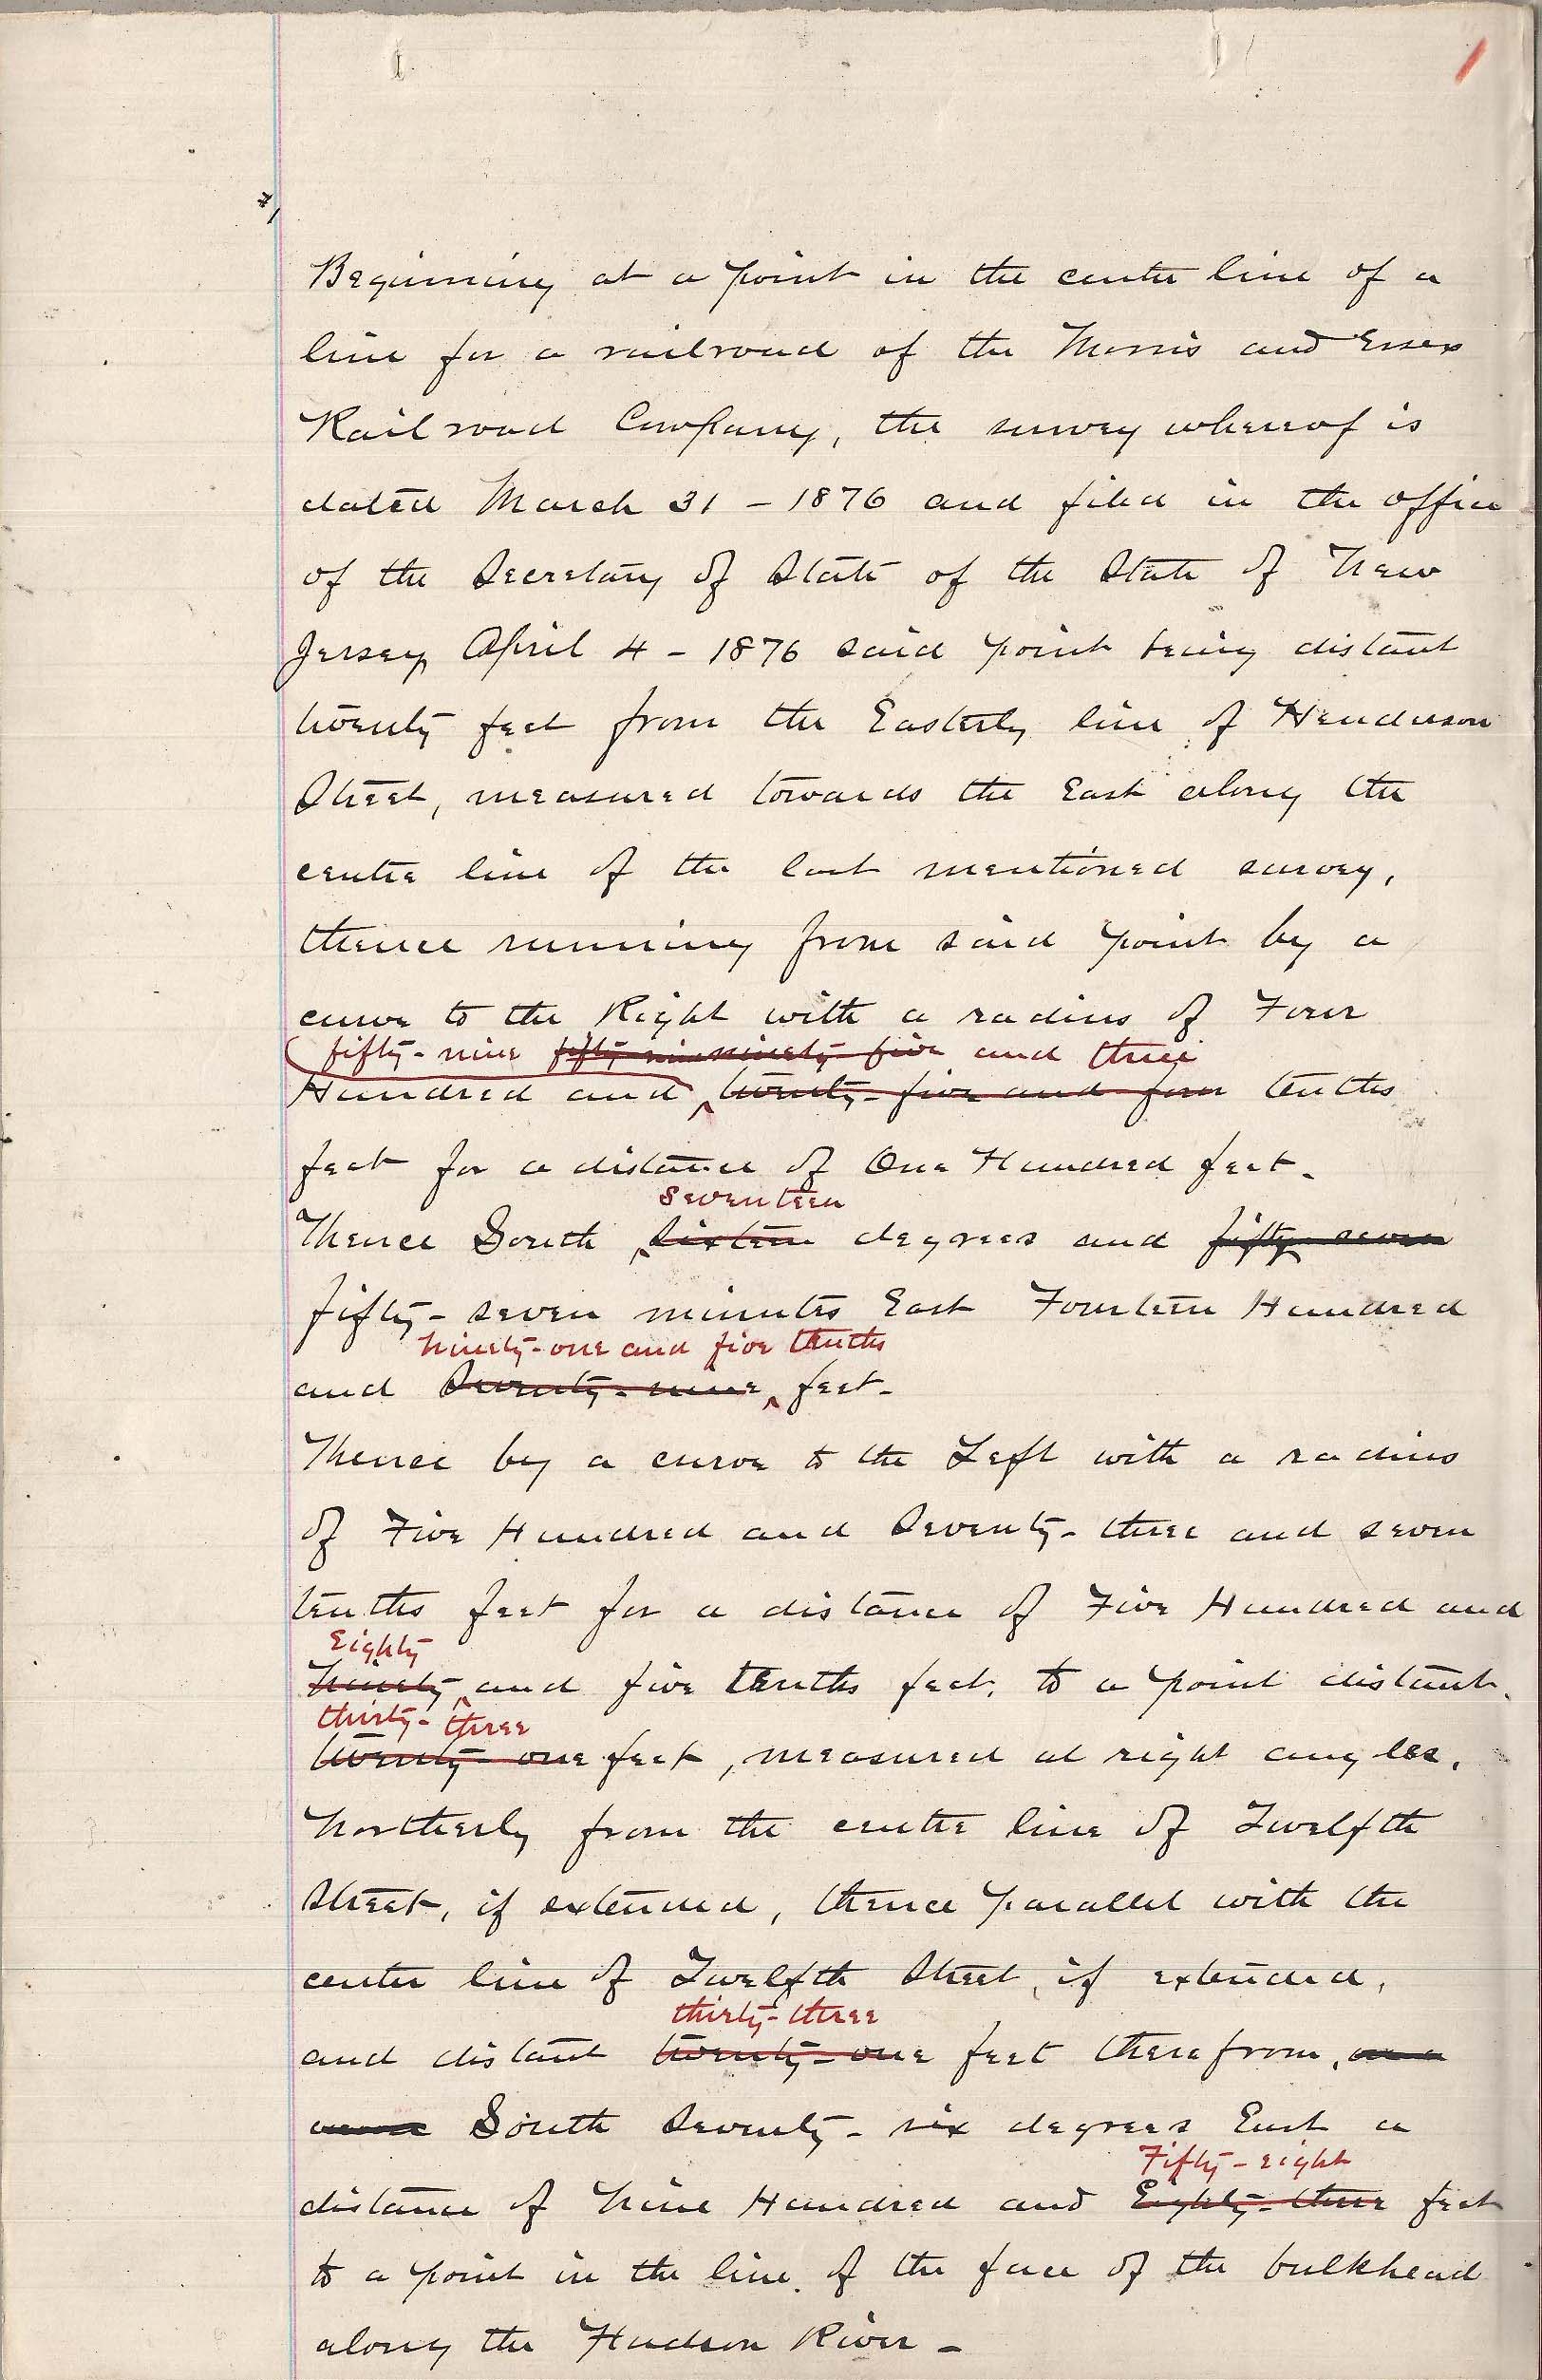 #1
Beginning at a point in the centre line of a
line for a railroad of the Morris and Essex
Railroad Company, the survey whereof is
dated March 31 - 1876 and filed in the office
of the Secretary of State of the State of New
Jersey, April 4 - 1876 said point being distant
twenty feet from the Easterly line of Henderson
Street, measured towards the East along the
centre line of the last mentioned survey,
thence running from said point by a
curve to the Right with a radius of Four
fifty-nine fifty-nine ninety-five and three
Hundred and twenty-five and four tenths
feet for a distance of One Hundred feet.
seventeen
Thence South sixteen degrees and fifty-seven
fifty-seven minutes East Fourteen Hundred
ninety-one and five tenths
and Seventy-nine feet-
Thence by a curve to the Left with a radius
of Five Hundred and Seventy-three and seven
tenths feet for a distance of Five Hundred and
Eighty
Ninety and five tenths feet, to a point distant,
thirty-three
twenty-one feet, measured at right angles,
Northerly from the centre line of Twelfth
Street, if extended, thence parallel with the
center line of Twelfth Street, if extended,
thirty-three
and distant twenty-one feet therefrom,
South Seventy-six degrees East a
Fifty-eight
distance of Nine Hundred and Eighty-three feet
to a point in the line of the face of the bulkhead
along the Hudson River -